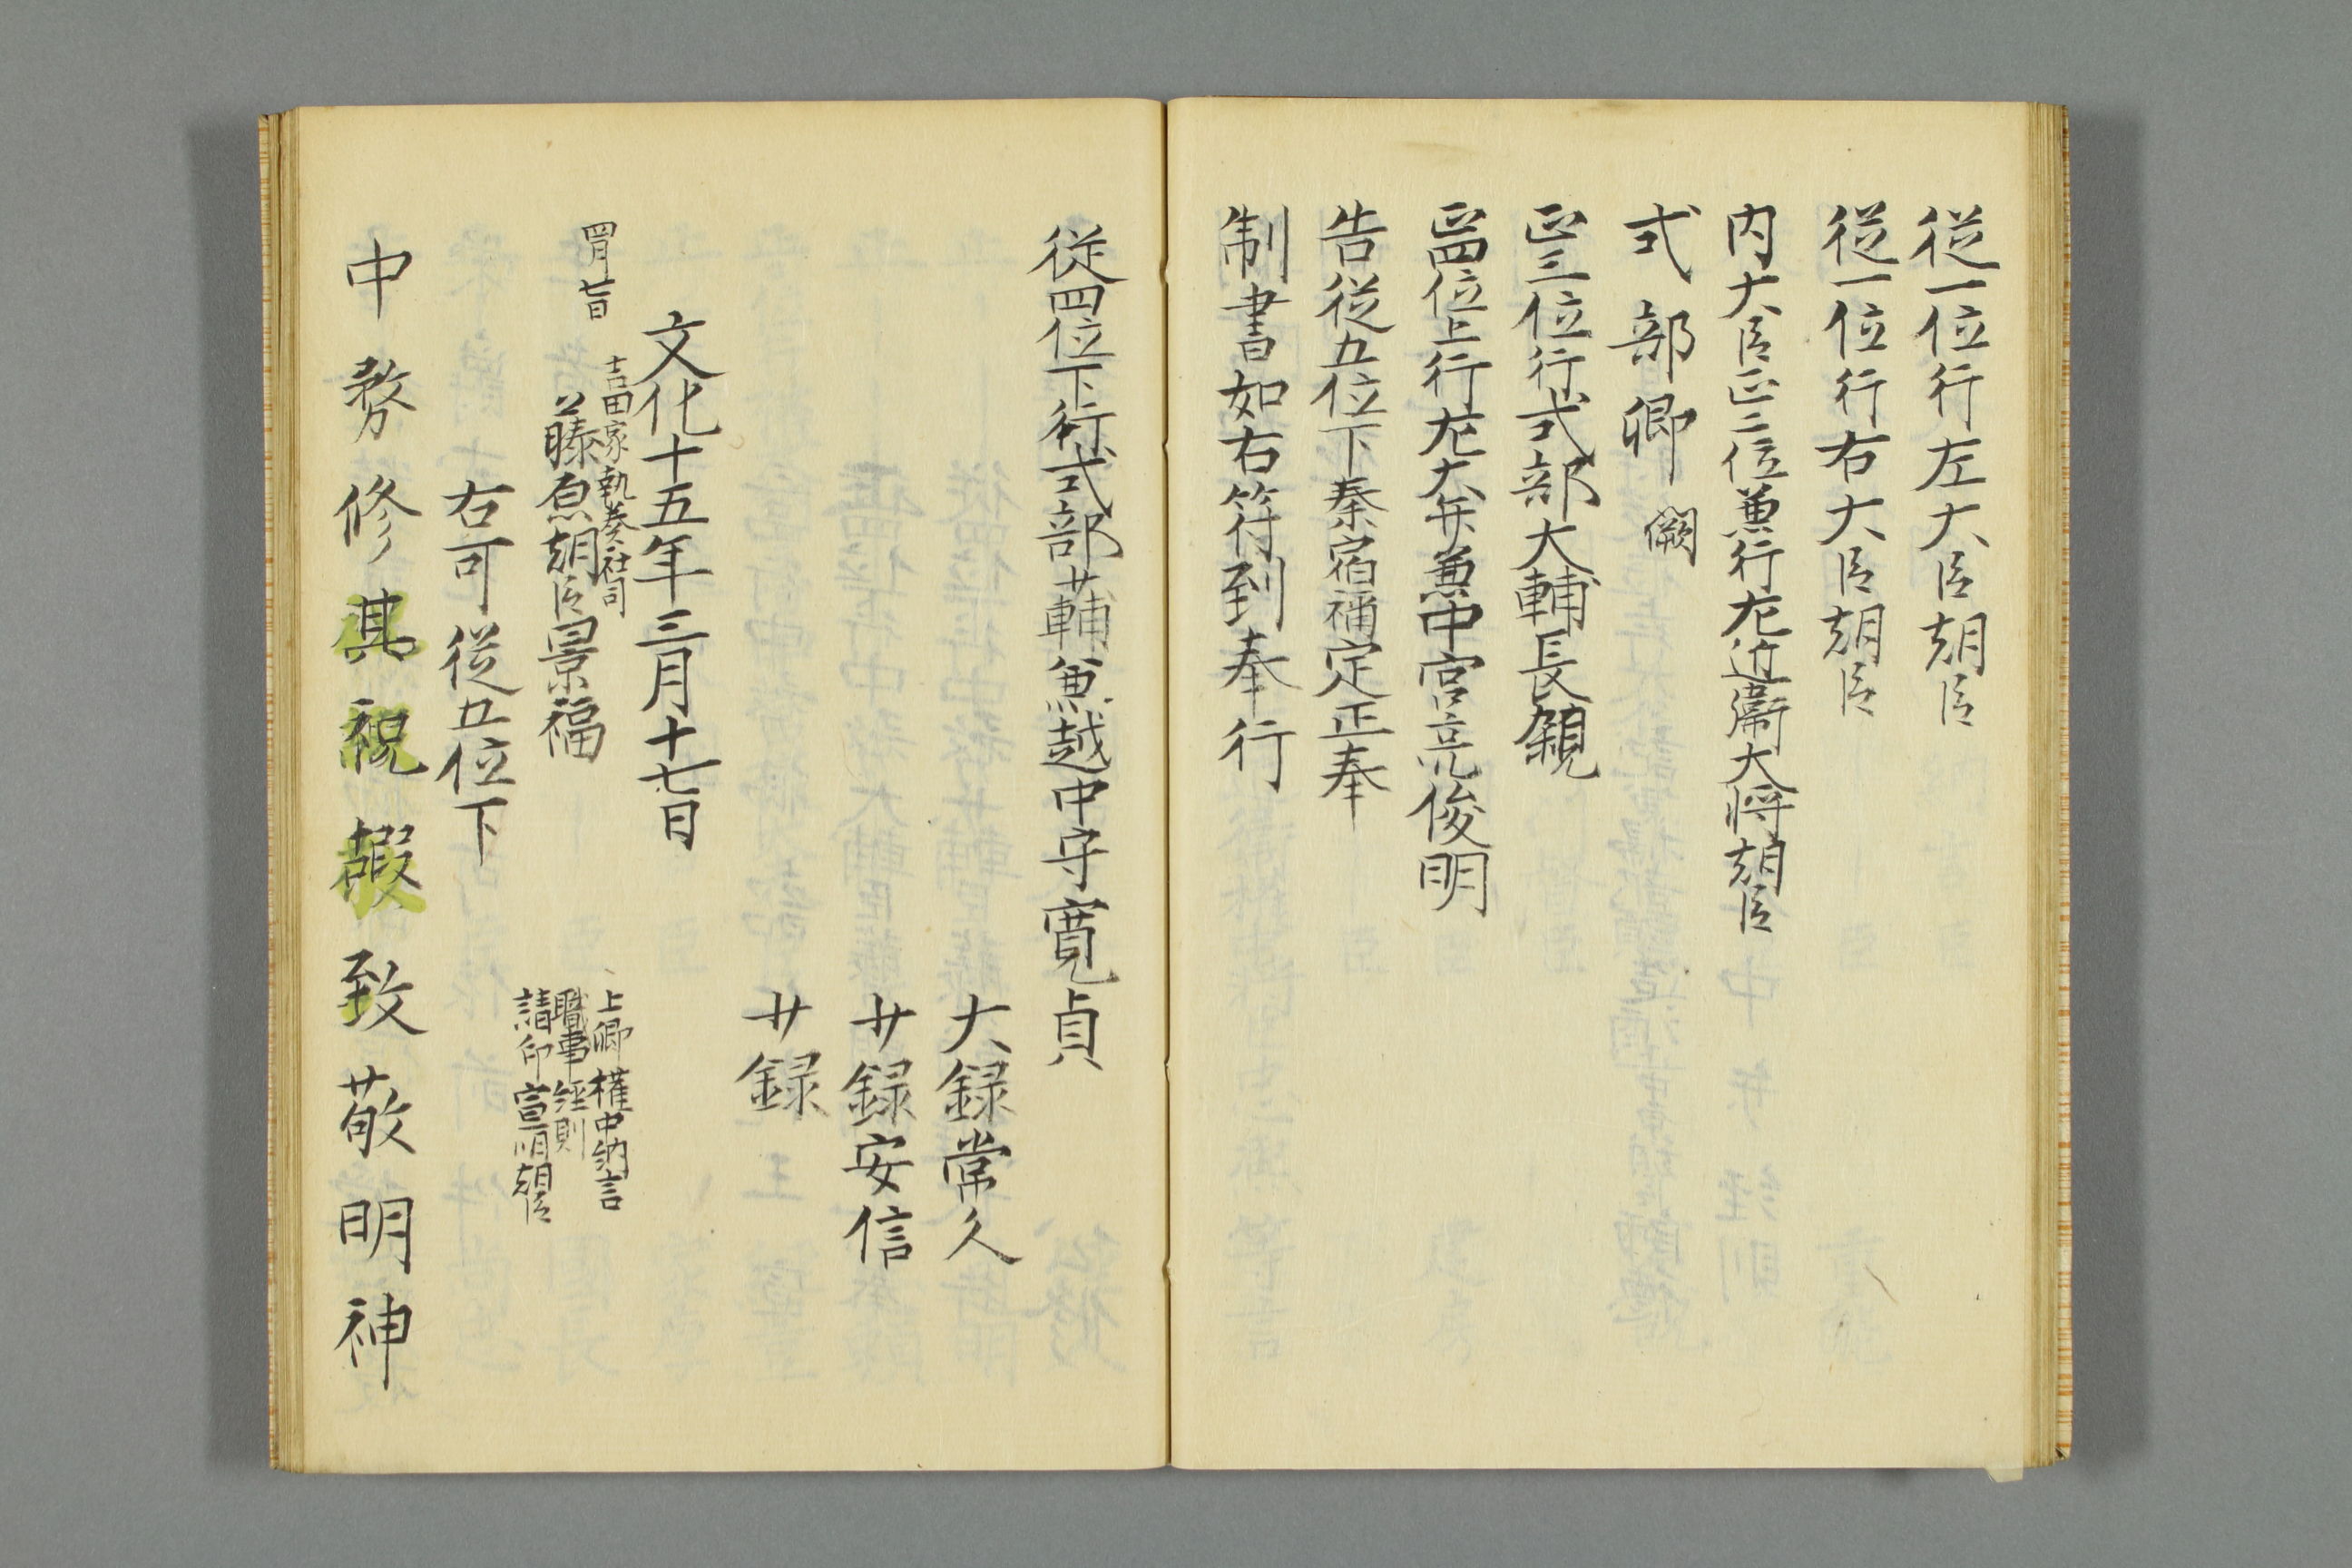 従一位行左大臣朝臣
従一位行右大臣朝臣
内大臣正二位兼行左近衛大将朝臣
式部卿 闕
正三位行式部大輔長親
正四位上行左大弁兼中宮亮俊明
告従五位下秦宿祢定正奉
制書如右符到奉行
従四位下行式部少輔兼越中守寛貞
大録常久
少録安信
少録
文化十五年三月十七日
四月七日
吉田家執奏社司
藤原朝臣景福
上卿権中納言
職事経則
請印宣明朝臣
右可従五位下
中務修其祝嘏致敬明神